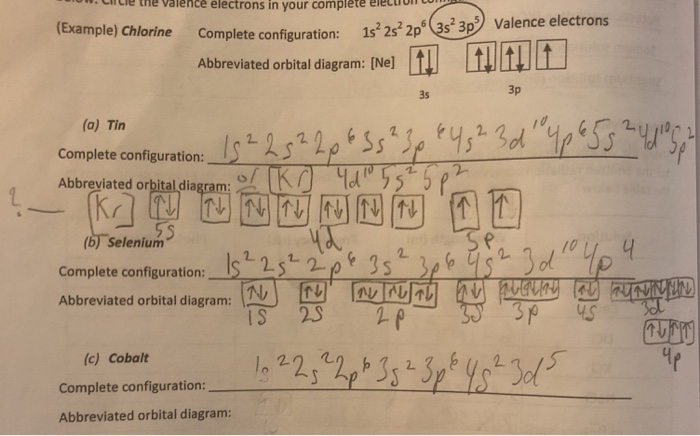 the valence electrons in your complete
(Example) Chlorine Complete configuration: 1s² 2s² 2p⁶ 3s² 3p⁵ Valence electrons
Abbreviated orbital diagram: [Ne] ↑↓ ↑↓ ↑↓ ↑
3s 3p
(a) Tin
Complete configuration: 1s² 2s² 2p⁶ 3s² 3p⁶ 4s² 3d¹⁰ 4p⁶ 5s² 4d¹⁰ 5p²
Abbreviated orbital diagram: or [Kr] 4d¹⁰ 5s² 5p²
? — [Kr] ↑↓ ↑↓ ↑↓ ↑↓ ↑↓ ↑↓ ↑ ↑
5s 4d 5p
(b) Selenium
Complete configuration: 1s² 2s² 2p⁶ 3s² 3p⁶ 4s² 3d¹⁰ 4p⁴
Abbreviated orbital diagram: ↑↓ ↑↓ ↑↓ ↑↓ ↑↓ ↑↓ ↑↓ ↑↓ ↑↓ ↑↓ ↑↓ ↑↓ ↑↓ ↑↓ ↑↓
1s 2s 2p 3s 3p 4s 3d
↑↓ ↑ ↑
4p
(c) Cobalt
Complete configuration: 1s² 2s² 2p⁶ 3s² 3p⁶ 4s² 3d⁵
Abbreviated orbital diagram: